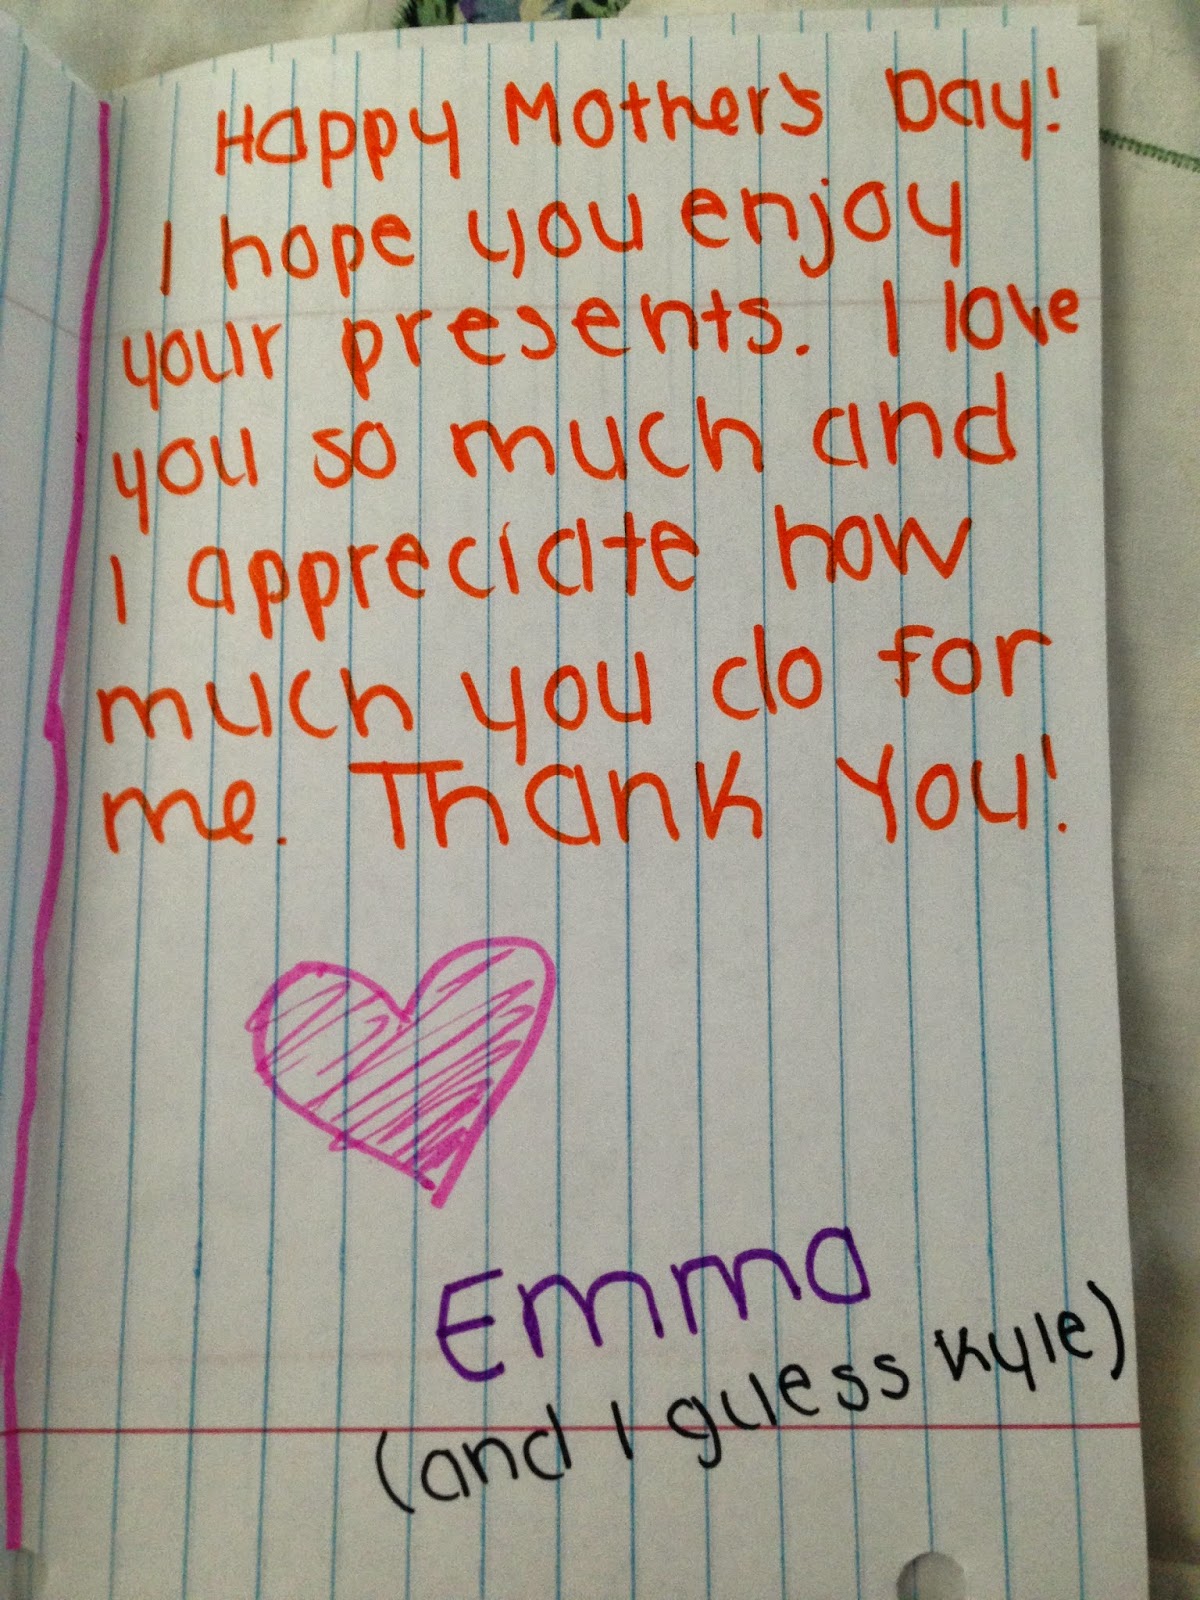 Happy Mother's Day!
I hope you enjoy
your presents. I love
you so much and
I appreciate how
much you do for
me. Thank You!
Emma
(and I guess Kyle)